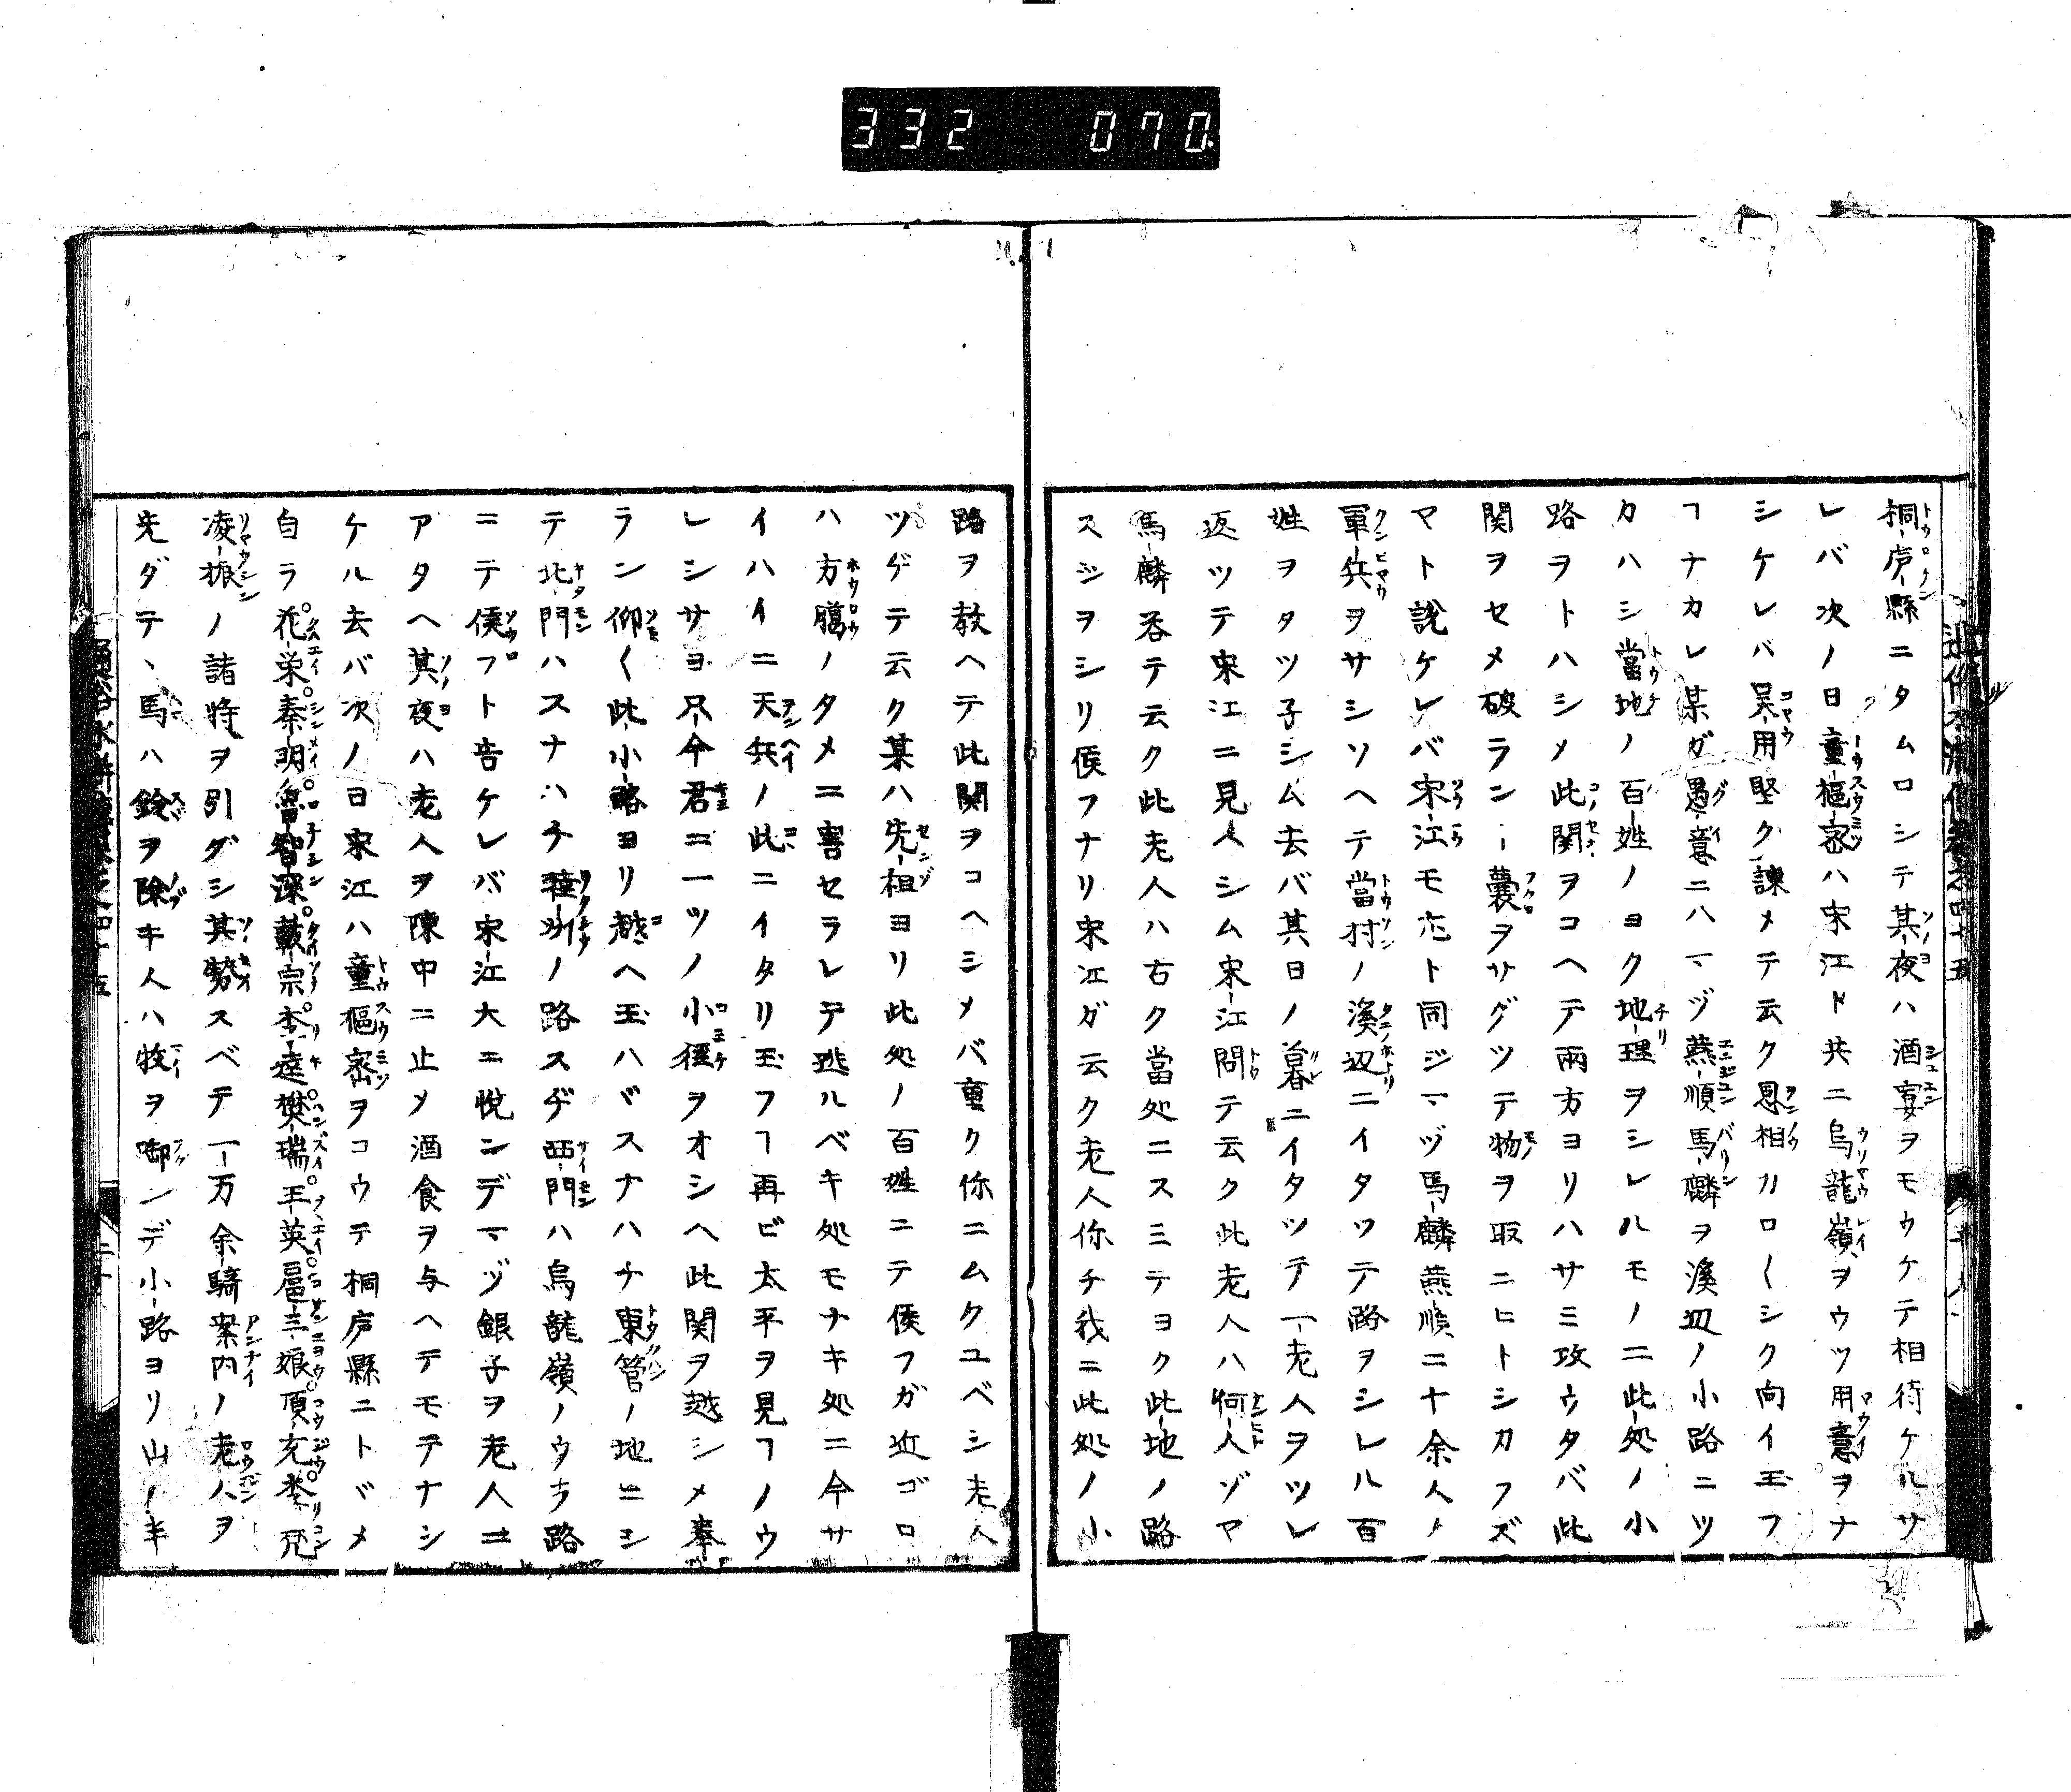 332 070
桐庐縣ニタムロシテ其夜ハ酒宴ヲモウケテ相待ケルサ
レバ次ノ日童樞密ハ宋江ト共ニ烏龍嶺ヲウツ用意ヲナ
シケレバ呉用堅ク諌メテ云ク恩相カロ〱シク向イ玉フ
ヿナカレ某ガ愚意ニハマヅ燕順馬麟ヲ溪辺ノ小路ニツ
カハシ當地ノ百姓ノヨク地理ヲシレルモノニ此処ノ小
路ヲトハシメ此関ヲコヘテ兩方ヨリハサミ攻ウタバ此
関ヲセメ破ランヿ囊ヲサグツテ物ヲ取ニヒトシカフズ
マト說ケレバ宋江モ志ト同ジマヅ馬麟燕順二十余人ノ
軍兵ヲサシソヘテ當村ノ溪辺ニイタツテ路ヲシレル百
姓ヲタツ子シム去バ其日ノ暮ニイタツテ一老人ヲツレ
返ツテ宋江ニ見ヘシム宋江問テ云ク此老人ハ何人ゾマ
馬麟吞テ云ク此老人ハ古ク當処ニスミテヨク此地ノ路
スジヲシリ侯フナリ宋江ガ云ク老人你チ我ニ此処ノ小
路ヲ教ヘテ此関ヲコヘシメバ重ク你ニムクユベシ老人
ツゲテ云ク某ハ先祖ヨリ此処ノ百姓ニテ侯フガ近ゴロ
ハ方臈ノタメニ害セラレテ逃ルベキ処モナキ処ニ今サ
イハイニ天兵ノ此ニイタリ玉フヿ再ビ太平ヲ見ヿノウ
レシサヨ只今君ニ一ツノ小徑ヲオシヘ此関ヲ越シメ奉
ラン仰〱此小路ヨリ越ヘ玉ハバスナハチ東管ノ地ニヨシ
テ北門ハスナハチ睦州ノ路スヂ西門ハ烏龍嶺ノウチ路
ニテ侯フト告ケレバ宋江大ニ悅ンデマヅ銀子ヲ老人ニ
アタヘ其夜ハ老人ヲ陳中ニ止メ酒食ヲ与ヘテモテナシ
ケル去バ次ノ日宋江ハ童樞密ヲコウテ桐庐縣ニトドメ
自ラ花栄秦明魯智深戴宗李逵樊瑞王英扈三娘項充李兗
凌振ノ諸将ヲ引グシ其勢スベテ一万余騎案内ノ老人ヲ
先ダテヽ馬ハ鈴ヲ除キ人ハ牧ヲ啣ンデ小路ヨリ山ノ半